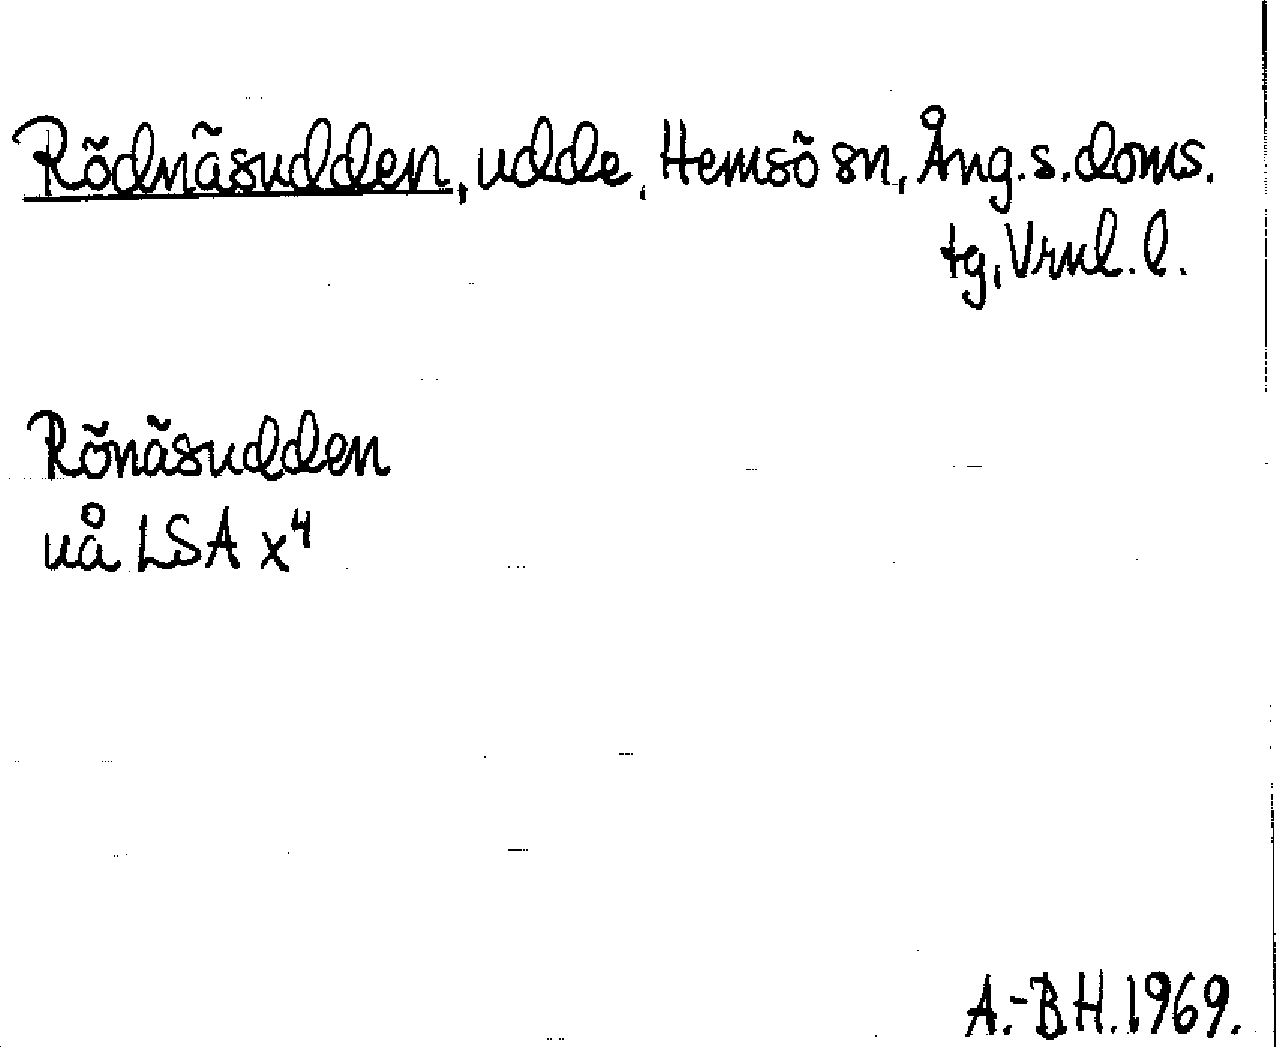 Rödnäsudden, udde, Hemsö sn, Ång. s. doms.
tg, Vrnl. l.
Rönäsudden
uå LSA x⁴
A.-B H. 1969.